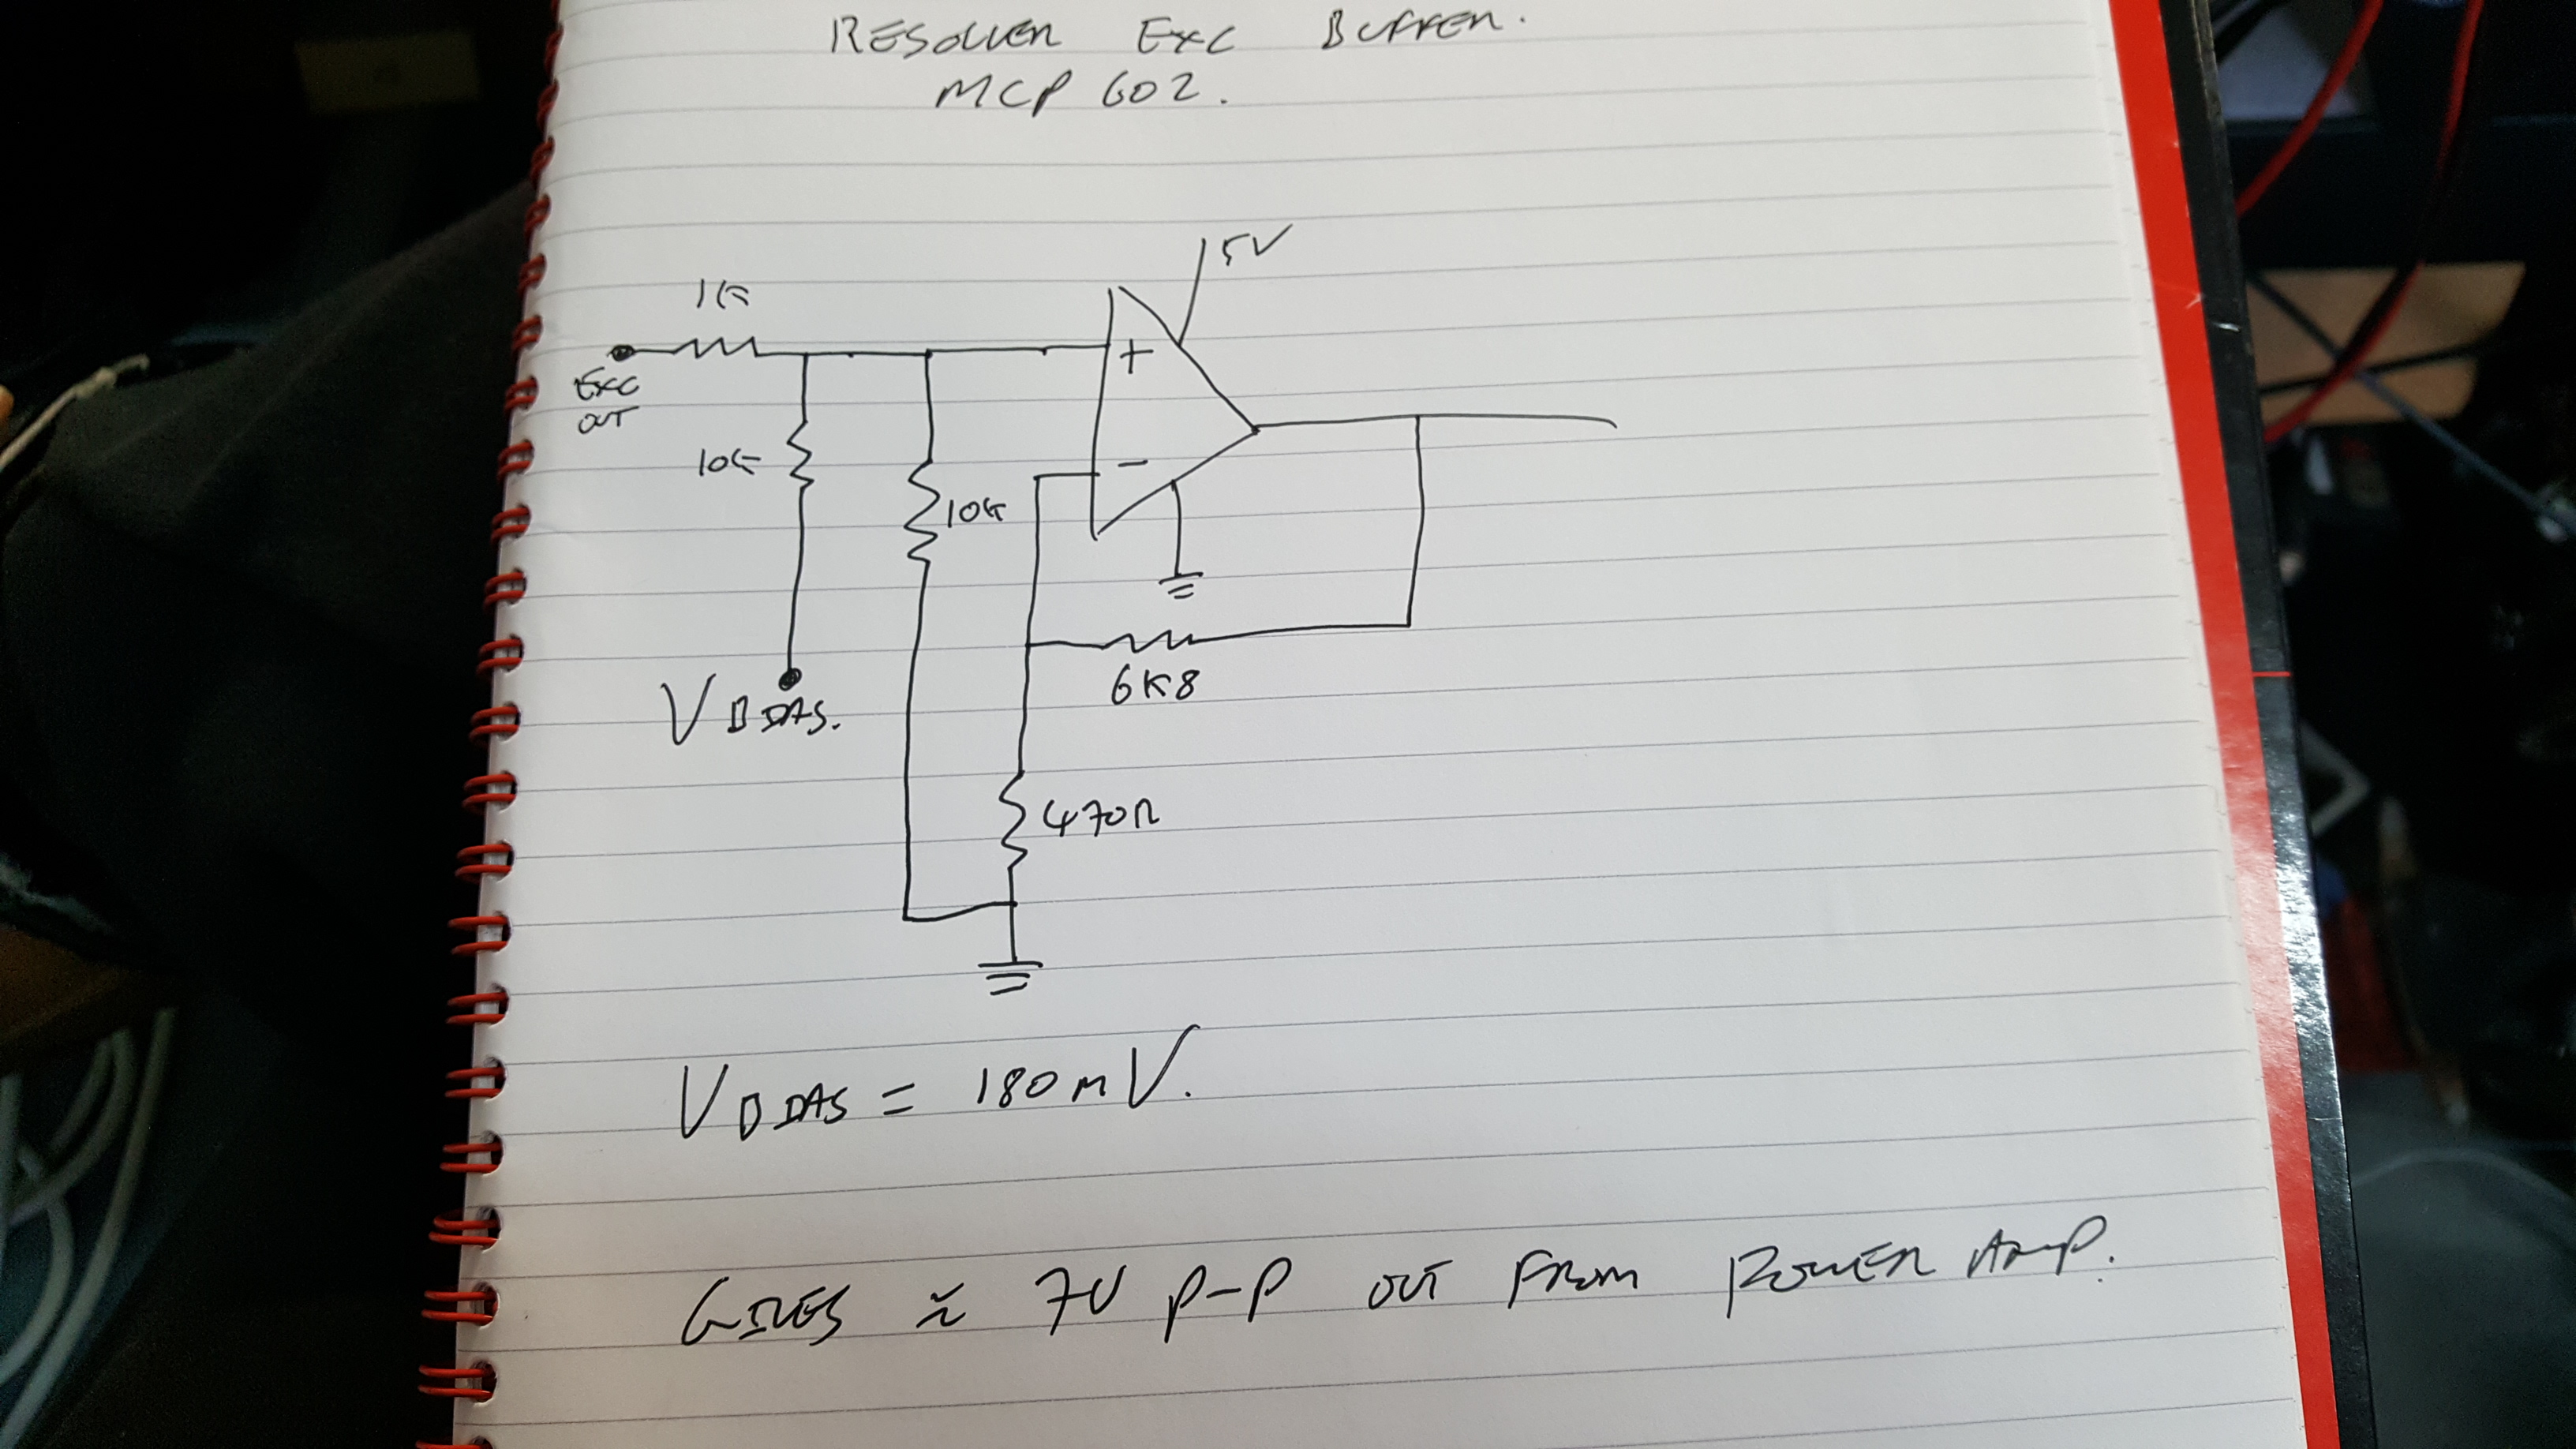 RESOLVER EXC BUFFER.
MCP 602.
5V
1K
+
EXC
OUT
10K
-
10K
6K8
VBIAS.
470Ω
VBIAS = 180mV.
GIVES ≈ 7V P-P OUT FROM POWER AMP.